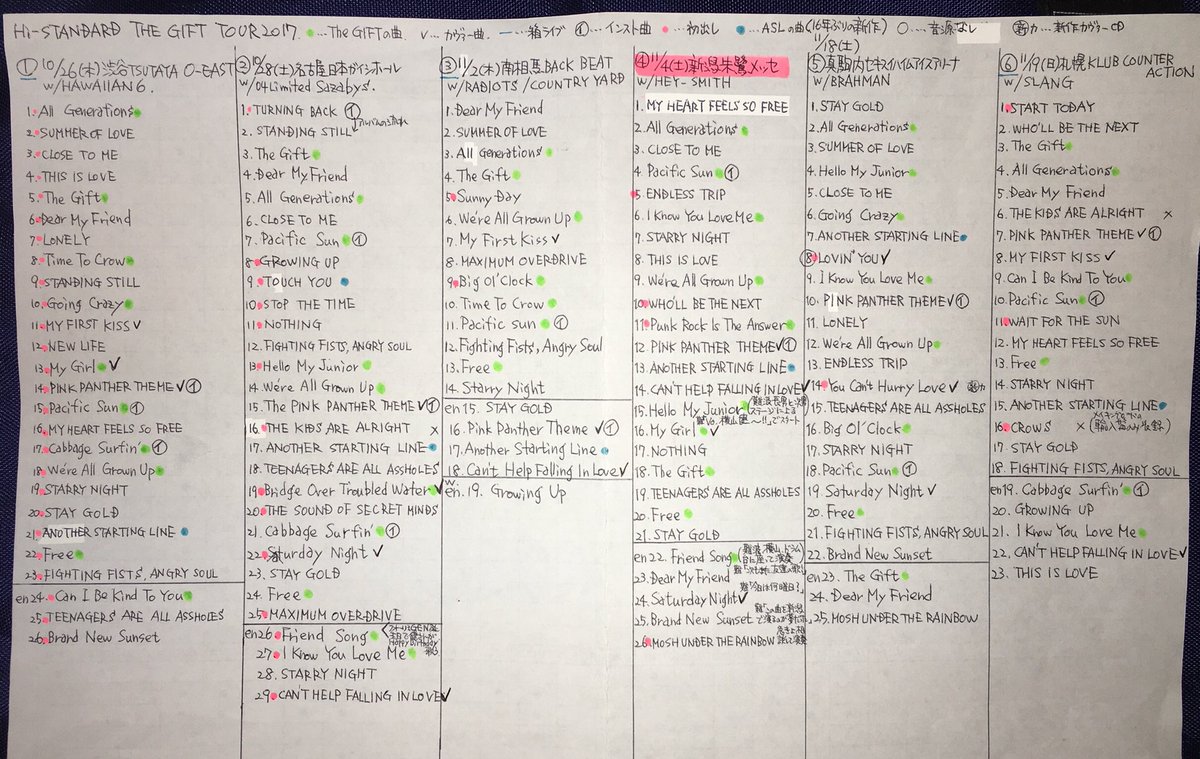 Hi-STANDARD THE GIFT TOUR 2017 ●…The GIFTの曲 ✓…カヴァー曲 ―…箱ライブ ①…インスト曲 ●…初出し ●…ASLの曲(16年ぶりの新作) ○…音源なし 新カ…新作カヴァーCD
① 10/26(木)渋谷TSUTATA O-EAST
w/HAWAIIAN6.
1. All Generations
2. SUMMER OF LOVE
3. CLOSE TO ME
4. THIS IS LOVE
5. The Gift
6. Dear My Friend
7. LONELY
8. Time To Crow
9. STANDING STILL
10. Going Crazy
11. MY FIRST KISS ✓
12. NEW LIFE
13. My Girl ✓
14. PINK PANTHER THEME ✓①
15. Pacific Sun ①
16. MY HEART FEELS SO FREE
17. Cabbage Surfin' ①
18. We're All Grown Up
19. STARRY NIGHT
20. STAY GOLD
21. ANOTHER STARTING LINE
22. Free
23. FIGHTING FISTS, ANGRY SOUL
en24. Can I Be Kind To You
25. TEENAGERS ARE ALL ASSHOLES
26. Brand New Sunset
② 10/28(土)名古屋日本ガイシホール
w/04Limited Sazabys.
1. TURNING BACK ①
2. STANDING STILL
3. The Gift
4. Dear My Friend
5. All Generations
6. CLOSE TO ME
7. Pacific Sun ①
8. GROWING UP
9. TOUCH YOU
10. STOP THE TIME
11. NOTHING
12. FIGHTING FISTS, ANGRY SOUL
13. Hello My Junior
14. We're All Grown Up
15. The PINK PANTHER THEME ✓①
16. THE KIDS ARE ALRIGHT ×
17. ANOTHER STARTING LINE
18. TEENAGERS ARE ALL ASSHOLES
19. Bridge Over Troubled Water ✓
20. THE SOUND OF SECRET MINDS
21. Cabbage Surfin' ①
22. Saturday Night ✓
23. STAY GOLD
24. Free
25. MAXIMUM OVERDRIVE
en26. Friend Song
27. I Know You Love Me
28. STARRY NIGHT
29. CAN'T HELP FALLING IN LOVE ✓
③ 11/2(木)南相馬BACK BEAT
w/RADIOTS/COUNTRY YARD
1. Dear My Friend
2. SUMMER OF LOVE
3. All Generations
4. The Gift
5. Sunny Day
6. We're All Grown Up
7. My First Kiss ✓
8. MAXIMUM OVERDRIVE
9. Big Ol' Clock
10. Time To Crow
11. Pacific sun ①
12. Fighting Fists, Angry Soul
13. Free
14. Starry Night
en15. STAY GOLD
16. Pink Panther Theme ✓①
17. Another Starting Line
18. Can't Help Falling In Love ✓
w.en.19. Growing Up
④ 11/4(土)新潟朱鷺メッセ
w/HEY-SMITH
1. MY HEART FEELS SO FREE
2. All Generations
3. CLOSE TO ME
4. Pacific Sun ①
5. ENDLESS TRIP
6. I Know You Love Me
7. STARRY NIGHT
8. THIS IS LOVE
9. We're All Grown Up
10. WHO'LL BE THE NEXT
11. Punk Rock Is The Answer
12. PINK PANTHER THEME ✓①
13. ANOTHER STARTING LINE
14. CAN'T HELP FALLING IN LOVE ✓
15. Hello My Junior
16. My Girl ✓
17. NOTHING
18. The Gift
19. TEENAGERS ARE ALL ASSHOLES
20. Free
21. STAY GOLD
en22. Friend Song
23. Dear My Friend
24. Saturday Night ✓
25. Brand New Sunset
26. MOSH UNDER THE RAINBOW
11/18(土)
⑤真駒内セキスイハイムアイスアリーナ
w/BRAHMAN
1. STAY GOLD
2. All Generations
3. SUMMER OF LOVE
4. Hello My Junior
5. CLOSE TO ME
6. Going Crazy
7. ANOTHER STARTING LINE
8. LOVIN' YOU ✓
9. I Know You Love Me
10. PINK PANTHER THEME ✓①
11. LONELY
12. We're All Grown Up
13. ENDLESS TRIP
14. You Can't Hurry Love ✓ 新カ
15. TEENAGERS ARE ALL ASSHOLES
16. Big Ol' Clock
17. STARRY NIGHT
18. Pacific Sun ①
19. Saturday Night ✓
20. Free
21. FIGHTING FISTS, ANGRY SOUL
22. Brand New Sunset
en23. The Gift
24. Dear My Friend
25. MOSH UNDER THE RAINBOW
⑥ 11/19(日)札幌KLUB COUNTER ACTION
w/SLANG
1. START TODAY
2. WHO'LL BE THE NEXT
3. The Gift
4. All Generations
5. Dear My Friend
6. THE KIDS ARE ALRIGHT ×
7. PINK PANTHER THEME ✓①
8. MY FIRST KISS ✓
9. Can I Be Kind To You
10. Pacific Sun ①
11. WAIT FOR THE SUN
12. MY HEART FEELS SO FREE
13. Free
14. STARRY NIGHT
15. ANOTHER STARTING LINE
16. CROWS ×
17. STAY GOLD
18. FIGHTING FISTS, ANGRY SOUL
en19. Cabbage Surfin' ①
20. GROWING UP
21. I Know You Love Me
22. CAN'T HELP FALLING IN LOVE ✓
23. THIS IS LOVE